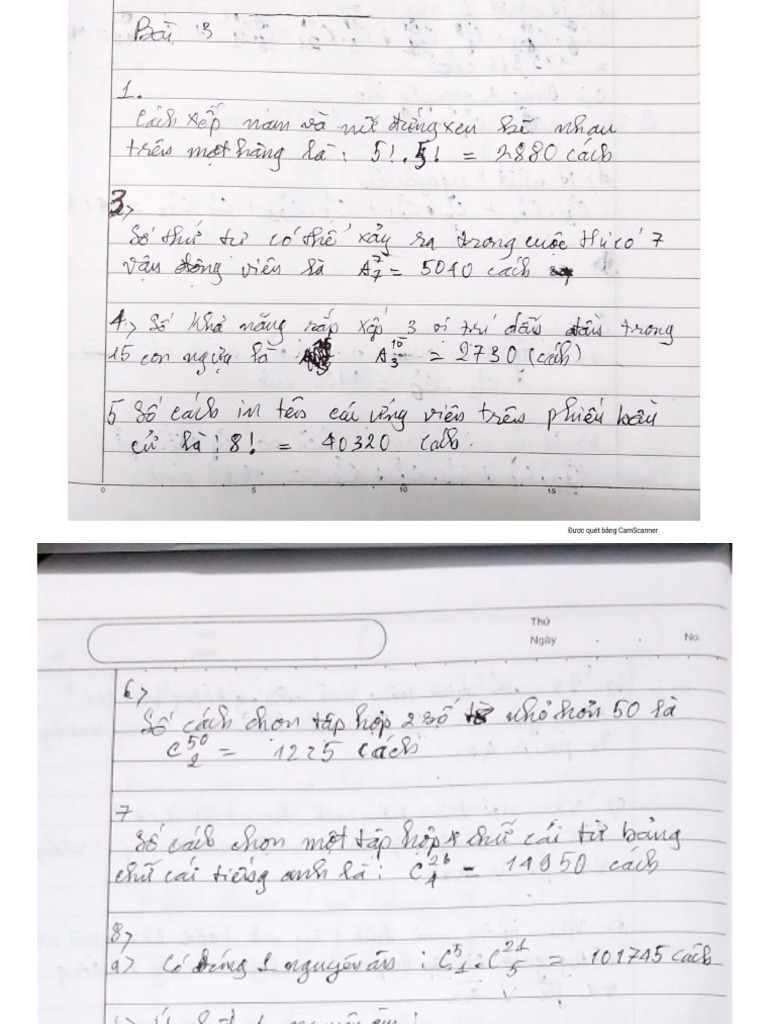 Bài 3
1.
Cách xếp nam và nữ đứng xen kẽ nhau
trên một hàng là : 5! . 5! = 2880 cách
3>
Số thứ tự có thể xảy ra trong cuộc thi có 7
vận động viên là A⁷₇ = 5040 cách
4> Số khả năng sắp xếp 3 vị trí đầu trong
15 con ngựa là A¹⁵₃ = 2730 (cách)
5 Số cách in tên các ứng viên trên phiếu bầu
cử là : 8! = 40320 cách.
0 5 10 15
Được quét bằng CamScanner
Thứ
Ngày . . No.
6>
Số cách chọn tập hợp 2 số nhỏ hơn 50 là
C⁵⁰₂ = 1225 cách
7
Số cách chọn một tập hợp chữ cái từ bảng
chữ cái tiếng anh là : C²⁶₄ = 14950 cách
8>
a> Có đúng 1 nguyên âm : C⁵₁ . C²¹₅ = 101745 cách